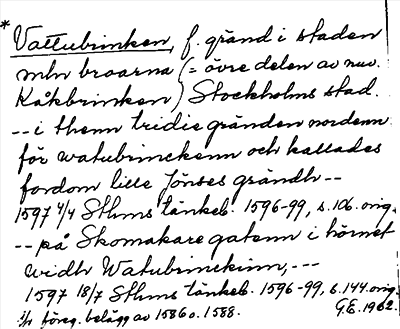 * Vattubrinken, f. gränd i staden
mln broarna (= övre delen av nuv.
Kåkbrinken) Stockholms stad.
-- i thenn tridie gränden nordenn
för watubrinckenn och kallades
fordom lille Jönses grändh --
1597 4/4 Sthms tänkeb. 1596-99, s. 106. orig.
-- på Skomakare gatenn i hörnet
widh Watubrinckinn, --
1597 18/7 Sthms tänkeb. 1596-99, s. 144. orig.
i/h föreg. belägg av 1586 o. 1588. G.E. 1962.